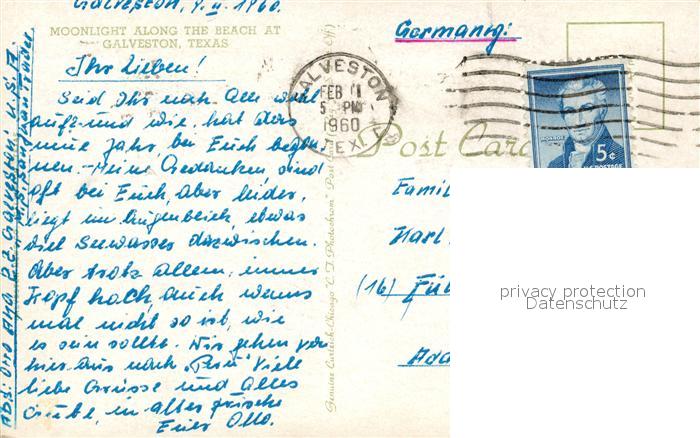 Galveston, 9. II. 1960.
MOONLIGHT ALONG THE BEACH AT
GALVESTON, TEXAS
Ihr Lieben!
Seid Ihr noch Alle wohl
auf? und wie hat das
neue Jahr bei Euch begon
nen. Meine Gedanken sind
oft bei Euch, aber leider,
liegt im Augenblick, etwas
viel Seewasser dazwischen.
Aber trotz allem, immer
Kopf hoch, auch wenns
mal nicht so ist, wie
es sein sollte. Wir gehen von
hier aus nach "Peru" Viele
liebe Grüsse und alles
Gute, in alter frische
Euer Otto.
Abs: Otto
Galveston U.S.A.
M.S.
Genuine Curteich-Chicago "C.T. Photochrom" Post Card
GALVESTON
FEB 11
5 PM
1960
TEX
Post Card
Germany:
MONROE
5¢
POSTAGE
Famil
Karl
(16)
privacy protection
Datenschutz